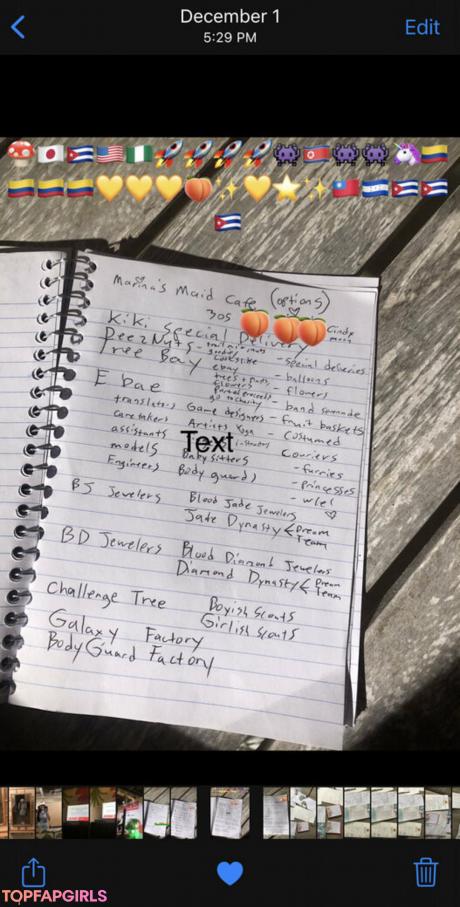 December 1
5:29 PM
Edit
Marina's Maid Cafe (options)
305
Kiki Special Delivery
DeezNuts
Tree Bay
- special deliveries
- balloons
- flowers
- fruit baskets
- Costumed
Couriers
- furries
- princesses
- wle!
E bae
ebay
trees + plants
flowers
go to charity
translators
Game designers
caretakers
Artists Yoga
assistants
Text
models
Baby sitters
Engineers
Body guards
BJ Jewelers
Blood Jade Jewelers
Jade Dynasty < Dream
Team
BD Jewelers
Blood Diamond Jewelers
Diamond Dynasty < Dream
Team
Challenge Tree
Boyish Scouts
Girlish Scouts
Galaxy Factory
BodyGuard Factory
TOPFAPGIRLS